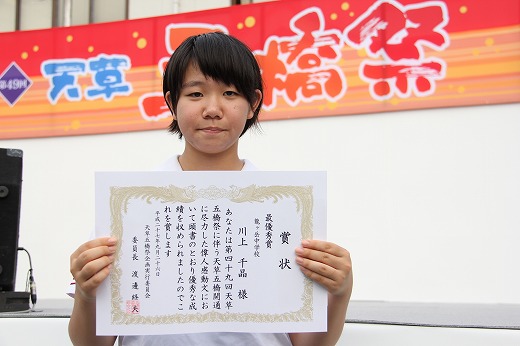 第49回
天草五橋祭
賞状
最優秀賞
龍ヶ岳中学校
川上 千晶 様
あなたは第四十九回天草
五橋祭に伴う天草五橋開通
に尽力した偉人感動文にお
いて頭書のとおり優秀な成
績を収められましたのでこ
れを賞します
平成二十七年九月二十六日
天草五橋祭企画実行委員会
委員長 渡邊